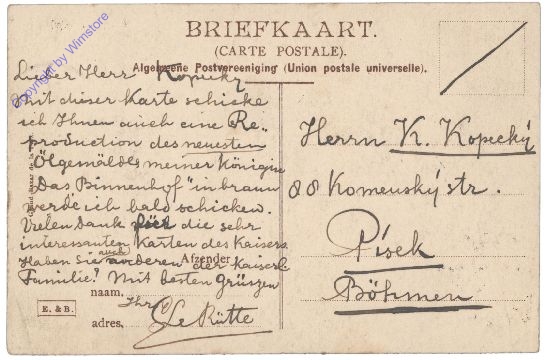 BRIEFKAART.
(CARTE POSTALE).
Algemeene Postvereeniging (Union postale universelle).
Copyright by Wimstore
Lieber Herr Kopecky
Mit dieser Karte schicke
ich Ihnen auch eine Re-
production des neuesten
Ölgemäldes meiner Königin
"Das Binnenhof" in braun
werde ich bald schicken.
Vielen Dank für die sehr
interessanten Karten des Kaisers.
Haben Sie auch anderen der Kaiserl.
Familie? Mit besten Grüszen
Ihr
C Le Rütte
Afzender
naam,
adres,
E. & B.
Grand Bazar de la
Herrn K. Kopecký
88 Komenský str.
Písek
Böhmen